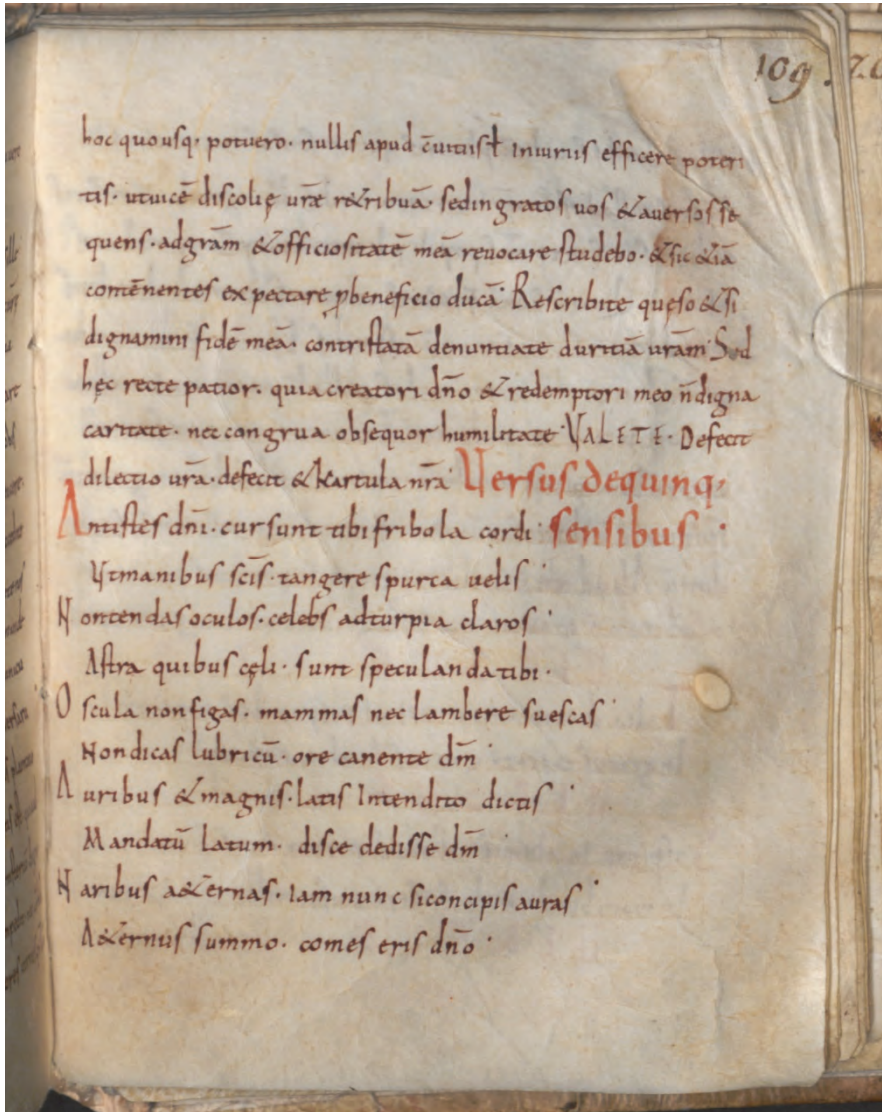 109.
hoc quousq· potuero· nullis apud iniuriis efficere poteri
tis· utuicē discolię ur̄æ r&ribuā· sedingratos uos &auersosse
quens· adgrām &officiositatē meā reuocare studebo· &sic &iā
contēnentes expectare ꝓbeneficio ducā· Rescribite quęso &si
dignamini fidē meā· contristatā denuntiate duritiā urām· Sed
hęc recte patior· quia creatori dn̄o &redemptori meo n̄digna
caritate· nec congrua obsequor humilitate· VALETE· Defecit
dilectio ur̄a· defecit &kartula nr̄a· Versus dequinq·
Antistes dn̄i· cur sunt tibi fribola cordi· sensibus·
Vtmanibus sc̄is· tangere spurca uelis·
Nontendasoculos· celebs adturpia claros·
Astra quibus cęli· sunt speculanda tibi·
Oscula nonfigas· mammas nec lambere suescas·
Nondicas lubricū· ore canente dm̄·
Auribus &magnis· latis Intendito dictis·
Mandatū latum· disce dedisse dm̄·
Naribus a&ernas· Iam nunc siconcipis auras·
A&erniis summo· comes eris dn̄o·